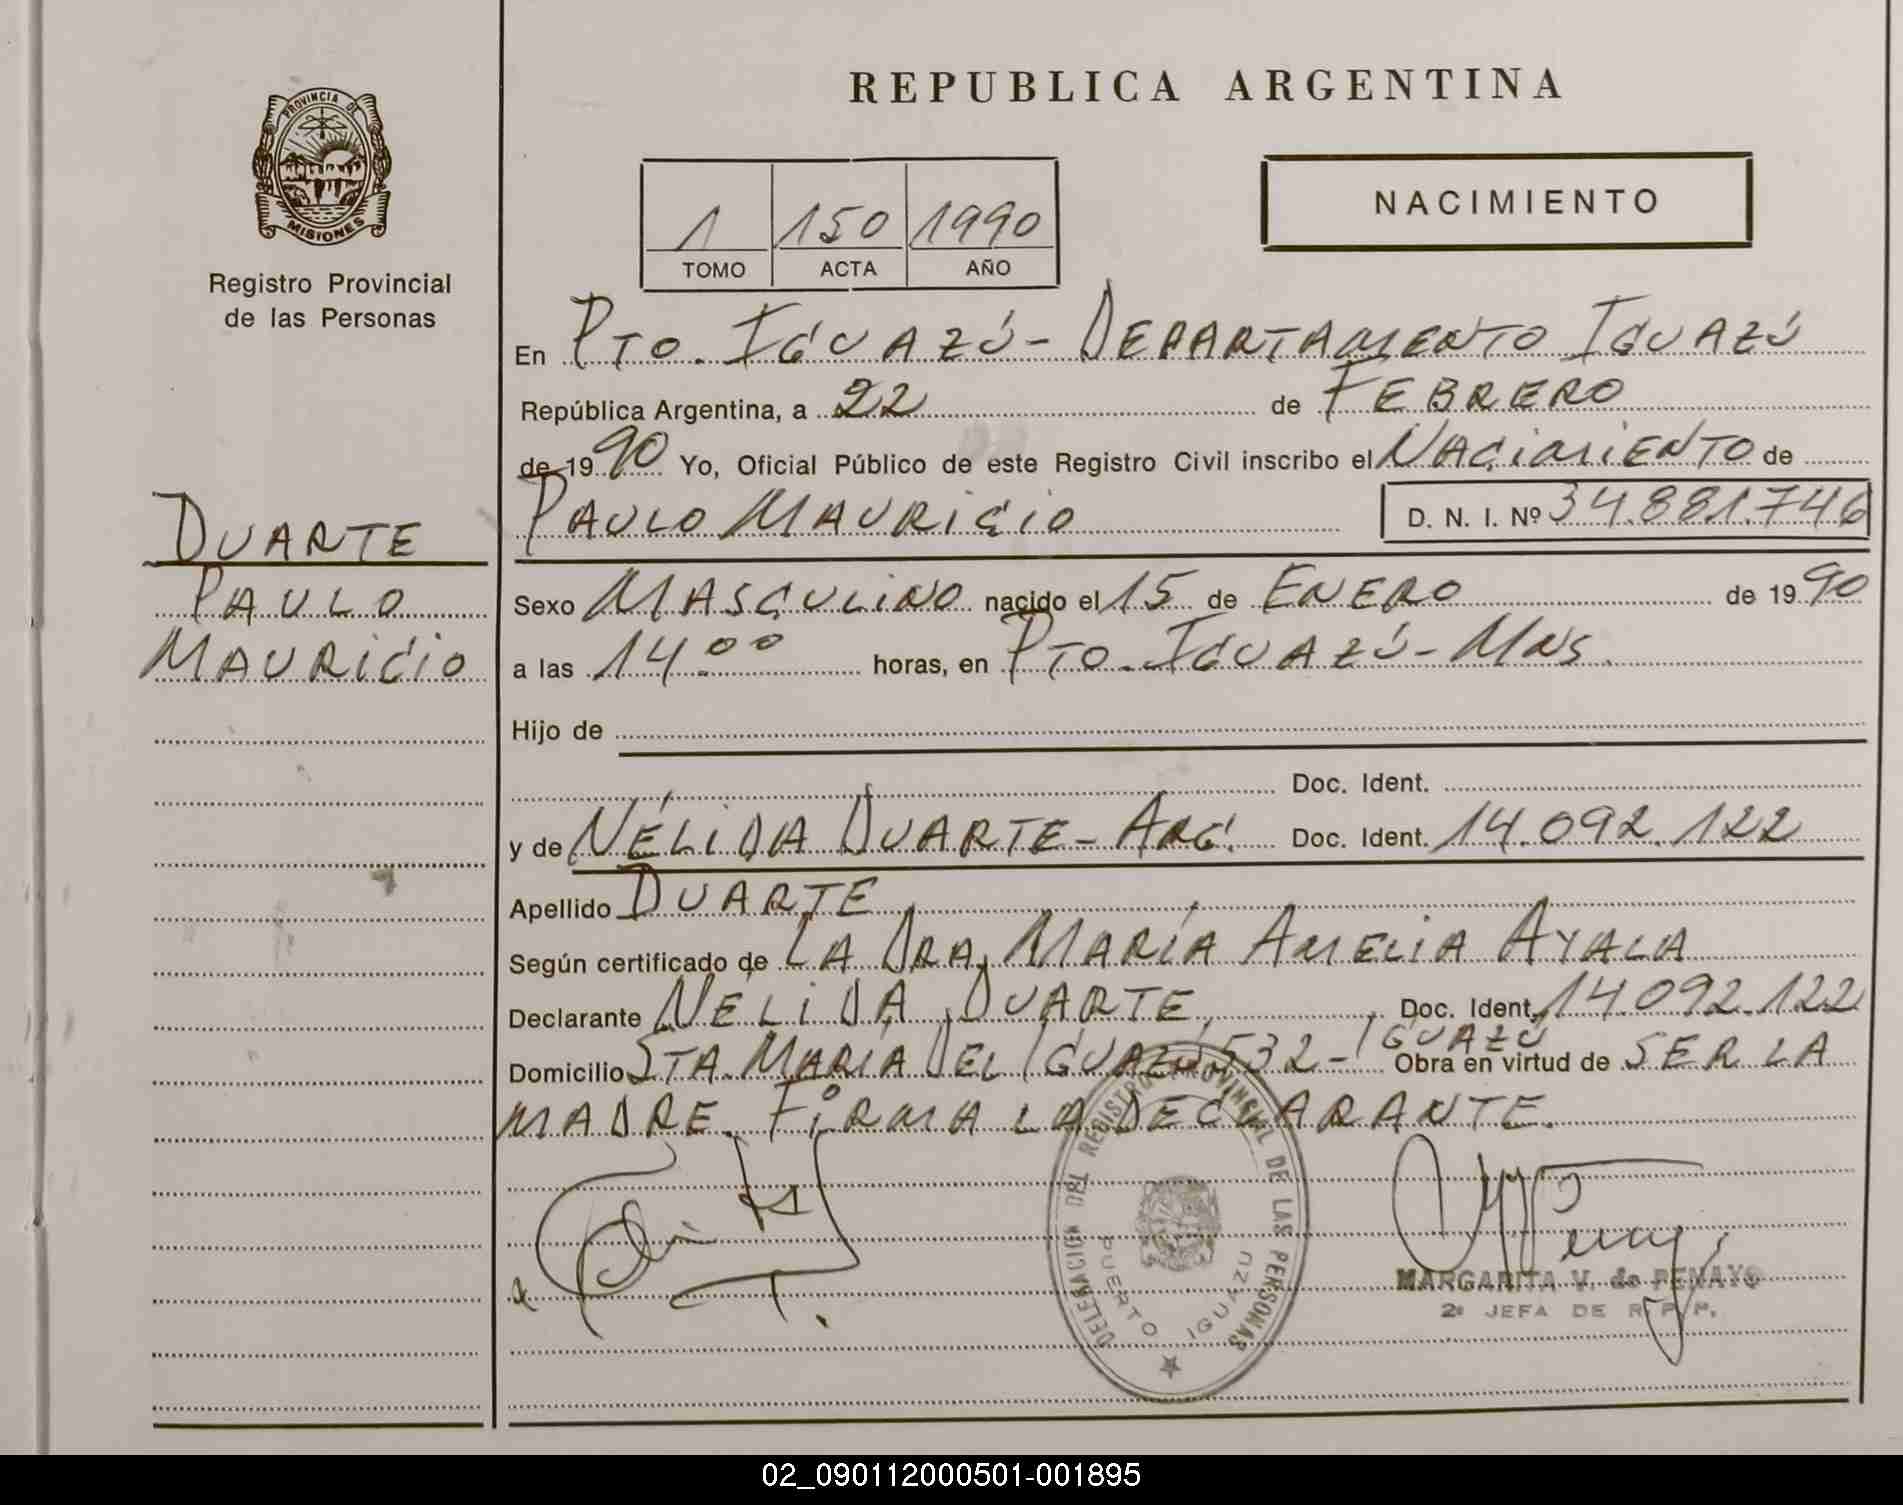 PROVINCIA DE
MISIONES
Registro Provincial
de las Personas
DUARTE
PAULO
MAURICIO
REPUBLICA ARGENTINA
1 150 1990
TOMO ACTA AÑO
NACIMIENTO
En PTO. IGUAZÚ - DEPARTAMENTO IGUAZÚ
República Argentina, a 22 de FEBRERO
de 1990 Yo, Oficial Público de este Registro Civil inscribo el NACIMIENTO de
PAULO MAURICIO D. N. I. Nº 34.881.746
Sexo MASCULINO nacido el 15 de ENERO de 1990
a las 14.00 horas, en PTO. IGUAZÚ - MNS.
Hijo de
Doc. Ident.
y de NÉLIDA DUARTE - ARG. Doc. Ident. 14.092.122
Apellido DUARTE
Según certificado de LA DRA. MARÍA AMELIA AYALA
Declarante NÉLIDA DUARTE, Doc. Ident. 14.092.122
Domicilio STA. MARÍA DEL IGUAZÚ 532 - IGUAZÚ Obra en virtud de SER LA
MADRE. FIRMA LA DECLARANTE.
DELEGACION DEL REGISTRO PROVINCIAL DE LAS PERSONAS
PUERTO IGUAZU
MARGARITA V. de PENAYO
2ª JEFA DE R. P. P.
02_090112000501-001895